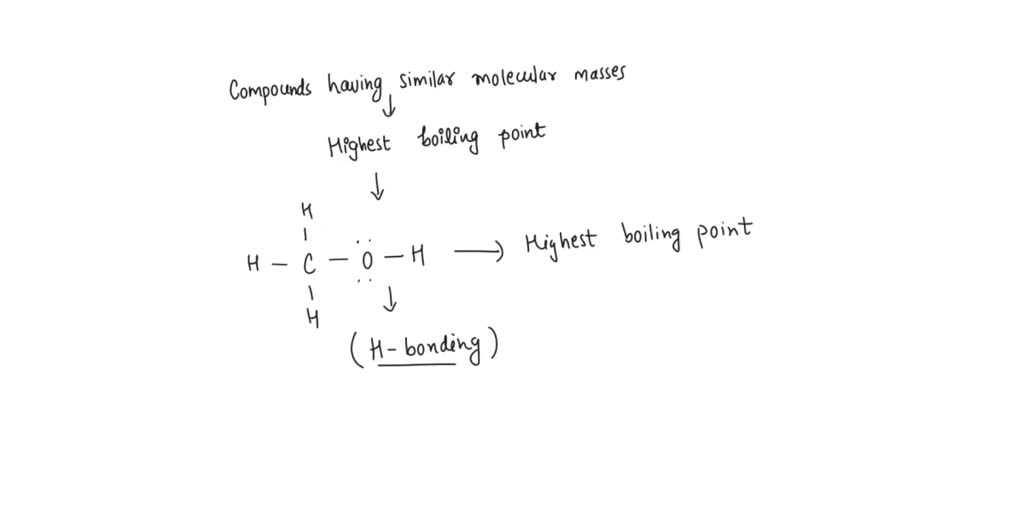 Compounds having similar molecular masses
↓
Highest boiling point
↓
H
|
H – C – Ö – H ⟶ Highest boiling point
| ↓
H
(H-bonding)